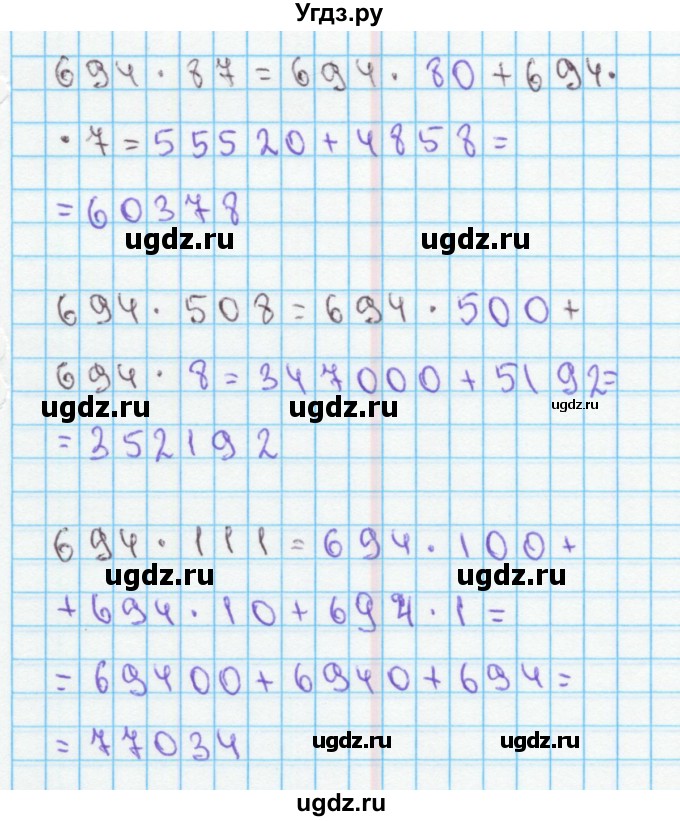 Угдз.ру
694 · 87 = 694 · 80 + 694 ·
· 7 = 55520 + 4858 =
= 60378
ugdz.ru ugdz.ru
694 · 508 = 694 · 500 +
694 · 8 = 347000 + 5192 =
ugdz.ru ugdz.ru ugdz.ru
= 352192
694 · 111 = 694 · 100 +
ugdz.ru ugdz.ru
+ 694 · 10 + 694 · 1 =
= 69400 + 6940 + 694 =
= 77034
ugdz.ru ugdz.ru
ugdz.ru